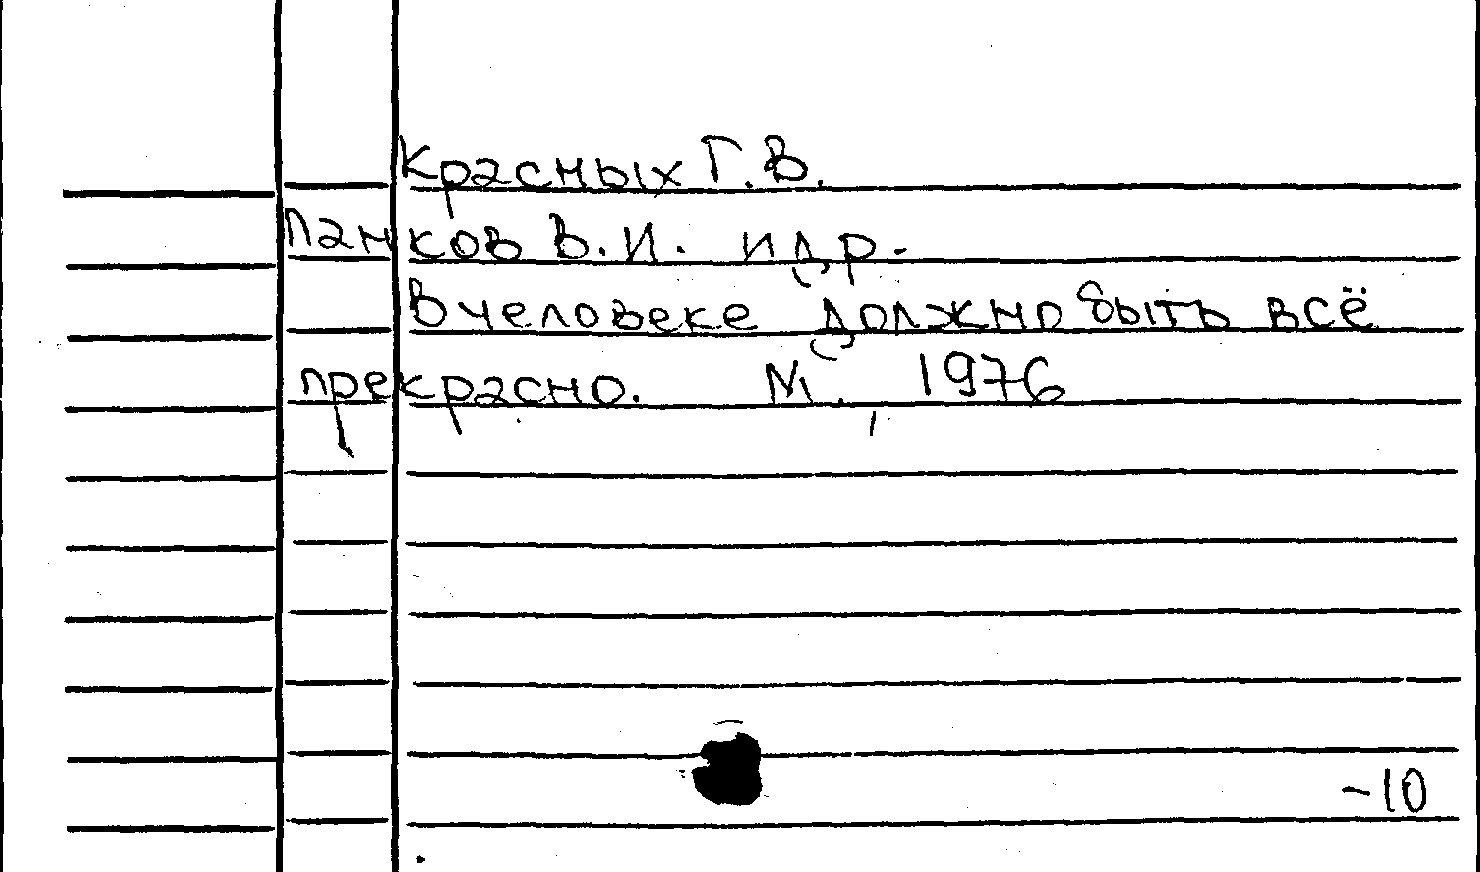 Красных Г.В.
Панков В.И. и др.
В человеке должно быть всё
прекрасно. М., 1976
-10